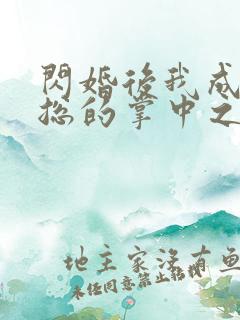 閃婚後我成
總的掌中之
地主家沒有魚
未經同意禁止轉載